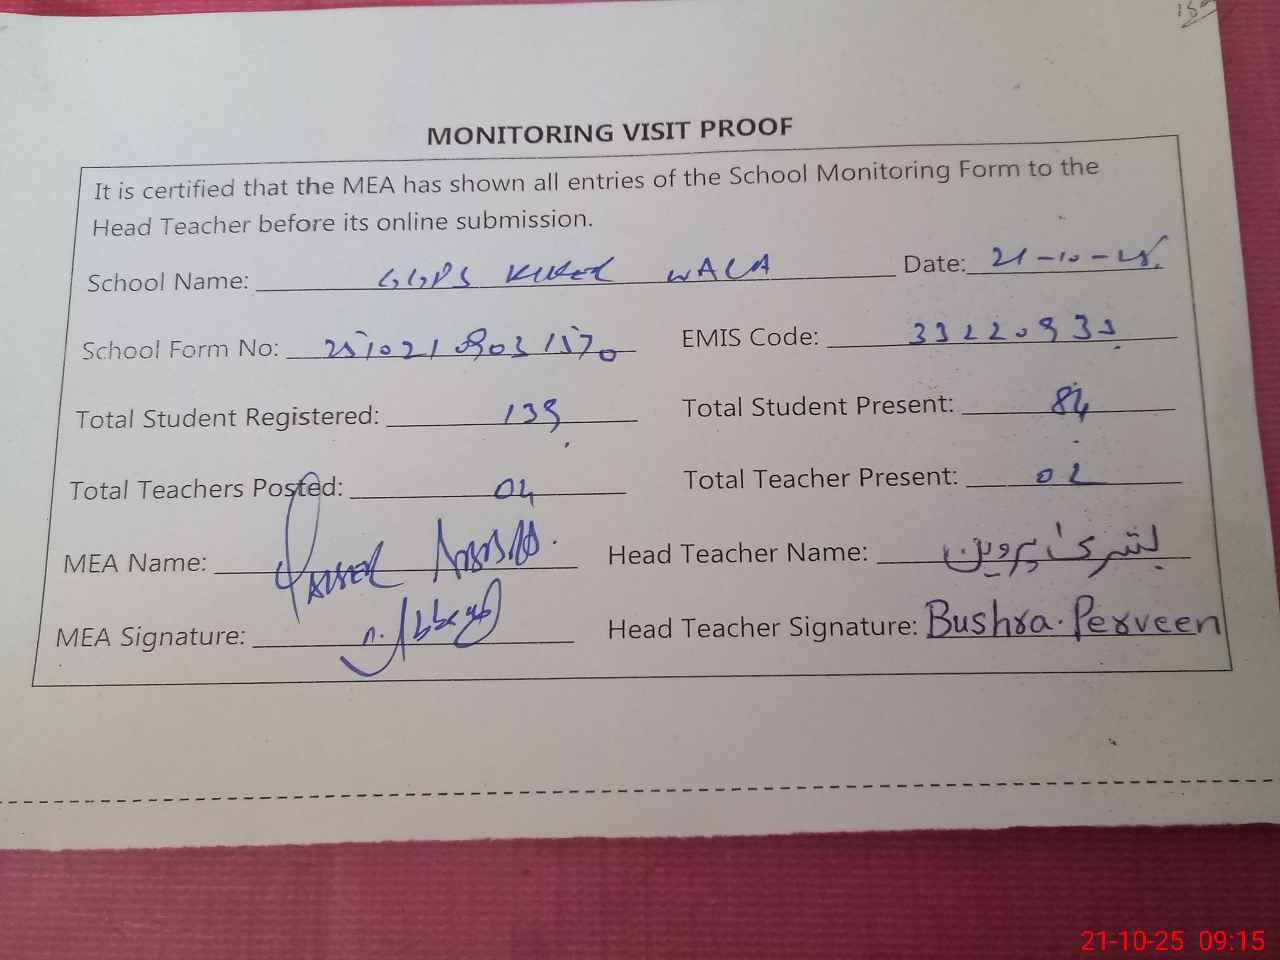 MONITORING VISIT PROOF
It is certified that the MEA has shown all entries of the School Monitoring Form to the
Head Teacher before its online submission.
School Name: GGPS KUKER WALA Date: 21-10-25.
School Form No: 25102109031570 EMIS Code:
Total Student Registered: 139 Total Student Present: 84
Total Teachers Posted: 04 Total Teacher Present: 02
MEA Name: Head Teacher Name: بشریٰ پروین
MEA Signature: Head Teacher Signature: Bushra. Perveen
21-10-25 09:15